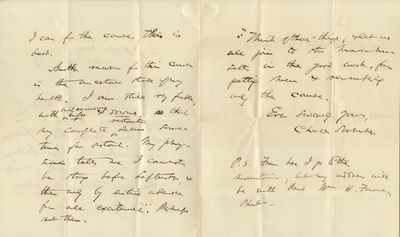 I can for the cause. This is
best.
Another reason for this course
is the uncertain state of my
health. I am still very feeble,
with many ups & downs, so that
my complete restoration seems some-
times far distant. My phys-
ician tells me I cannot
be strong before September, &
then only by entire absence
from all excitement. Perhaps
not then.
Think of these things, & let us
all join to the Massachusetts
in the good work, for-
getting men & remembering
only the cause.
Ever sincerely yours,
Charles Sumner
P.S. From here I go to the
mountains, but my address will
be with Revd Wm H. Furness,
Phila—